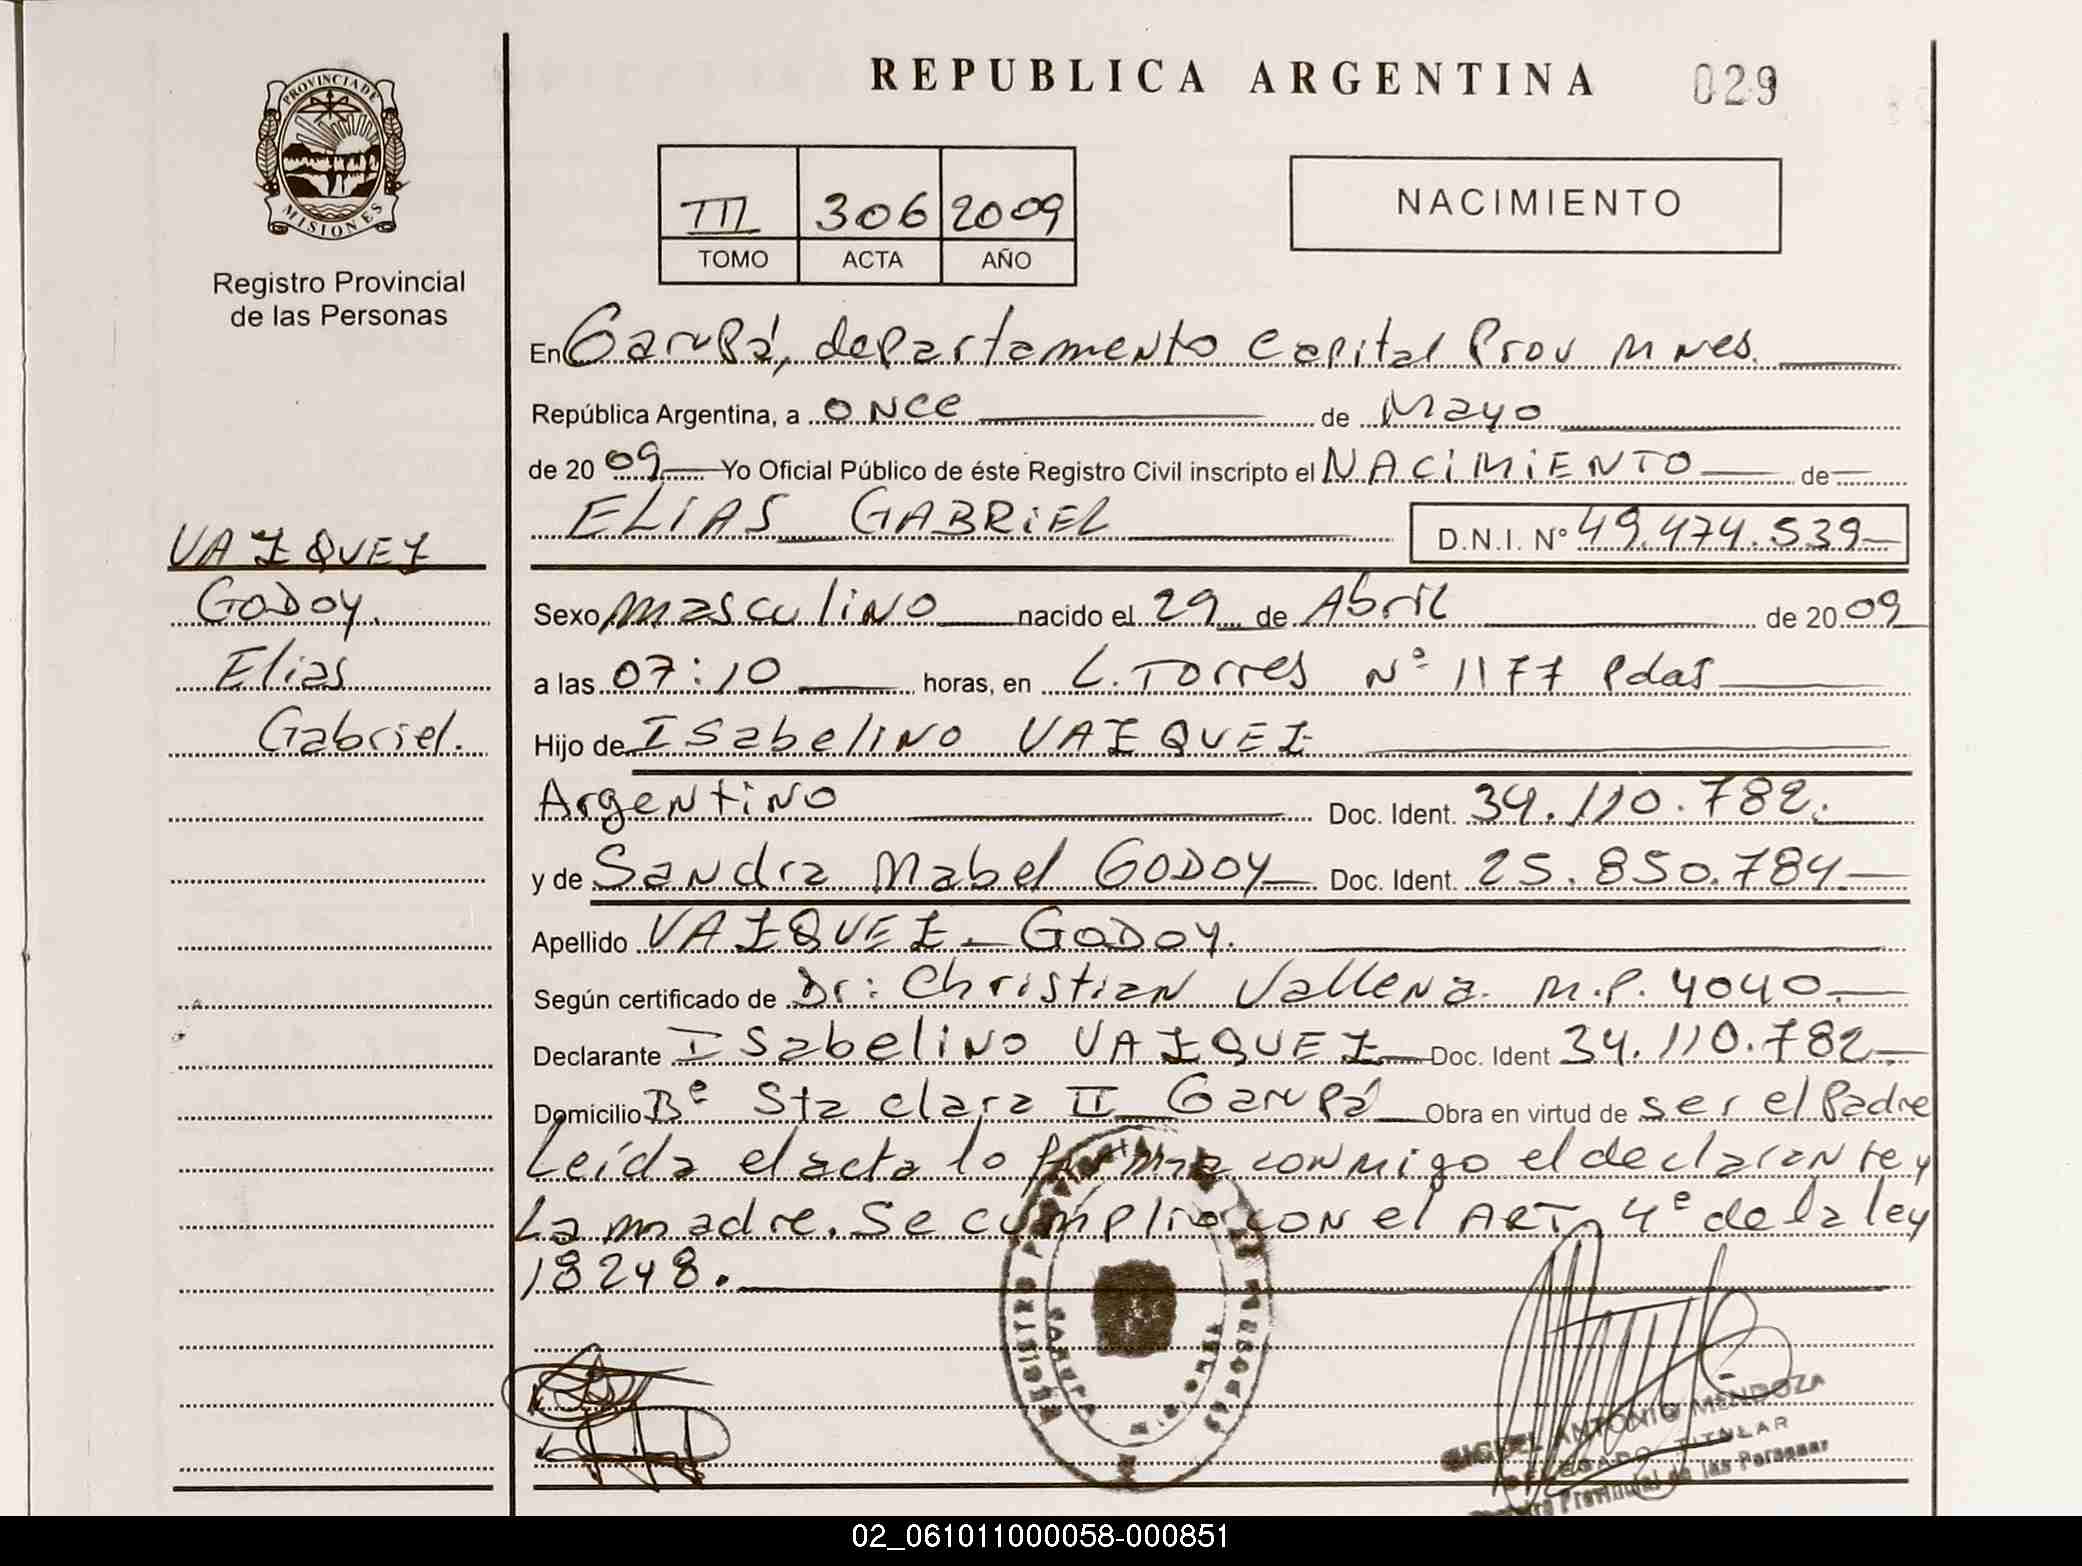 REPUBLICA ARGENTINA
029
PROVINCIA DE
MISIONES
Registro Provincial
de las Personas
III 306 2009
TOMO ACTA AÑO
NACIMIENTO
En Garupá, departamento Capital Prov Mnes.
República Argentina, a once de Mayo
de 2009 Yo Oficial Público de éste Registro Civil inscripto el NACIMIENTO de
ELIAS GABRIEL D.N.I. N° 49.474.539
VAZQUEZ
Godoy.
Elias
Gabriel.
Sexo masculino nacido el 29 de Abril de 2009
a las 07:10 horas, en L. Torres N° 1177 Pdas
Hijo de Isabelino VAZQUEZ
Argentino Doc. Ident. 34.110.782.
y de Sandra Mabel GODOY Doc. Ident. 25.850.784
Apellido VAZQUEZ - GODOY.
Según certificado de Dr: Christian Vallena. M.P. 4040.
Declarante Isabelino VAZQUEZ Doc. Ident 34.110.782
Domicilio B° Sta clara II Garupá Obra en virtud de ser el Padre
Leída el acta lo firma conmigo el declarante y
La madre. Se cumplio con el ART 4° de la ley
18248.
ANTONIO MENDOZA
DELEGADO TITULAR
Registro Provincial de las Personas
02_061011000058-000851